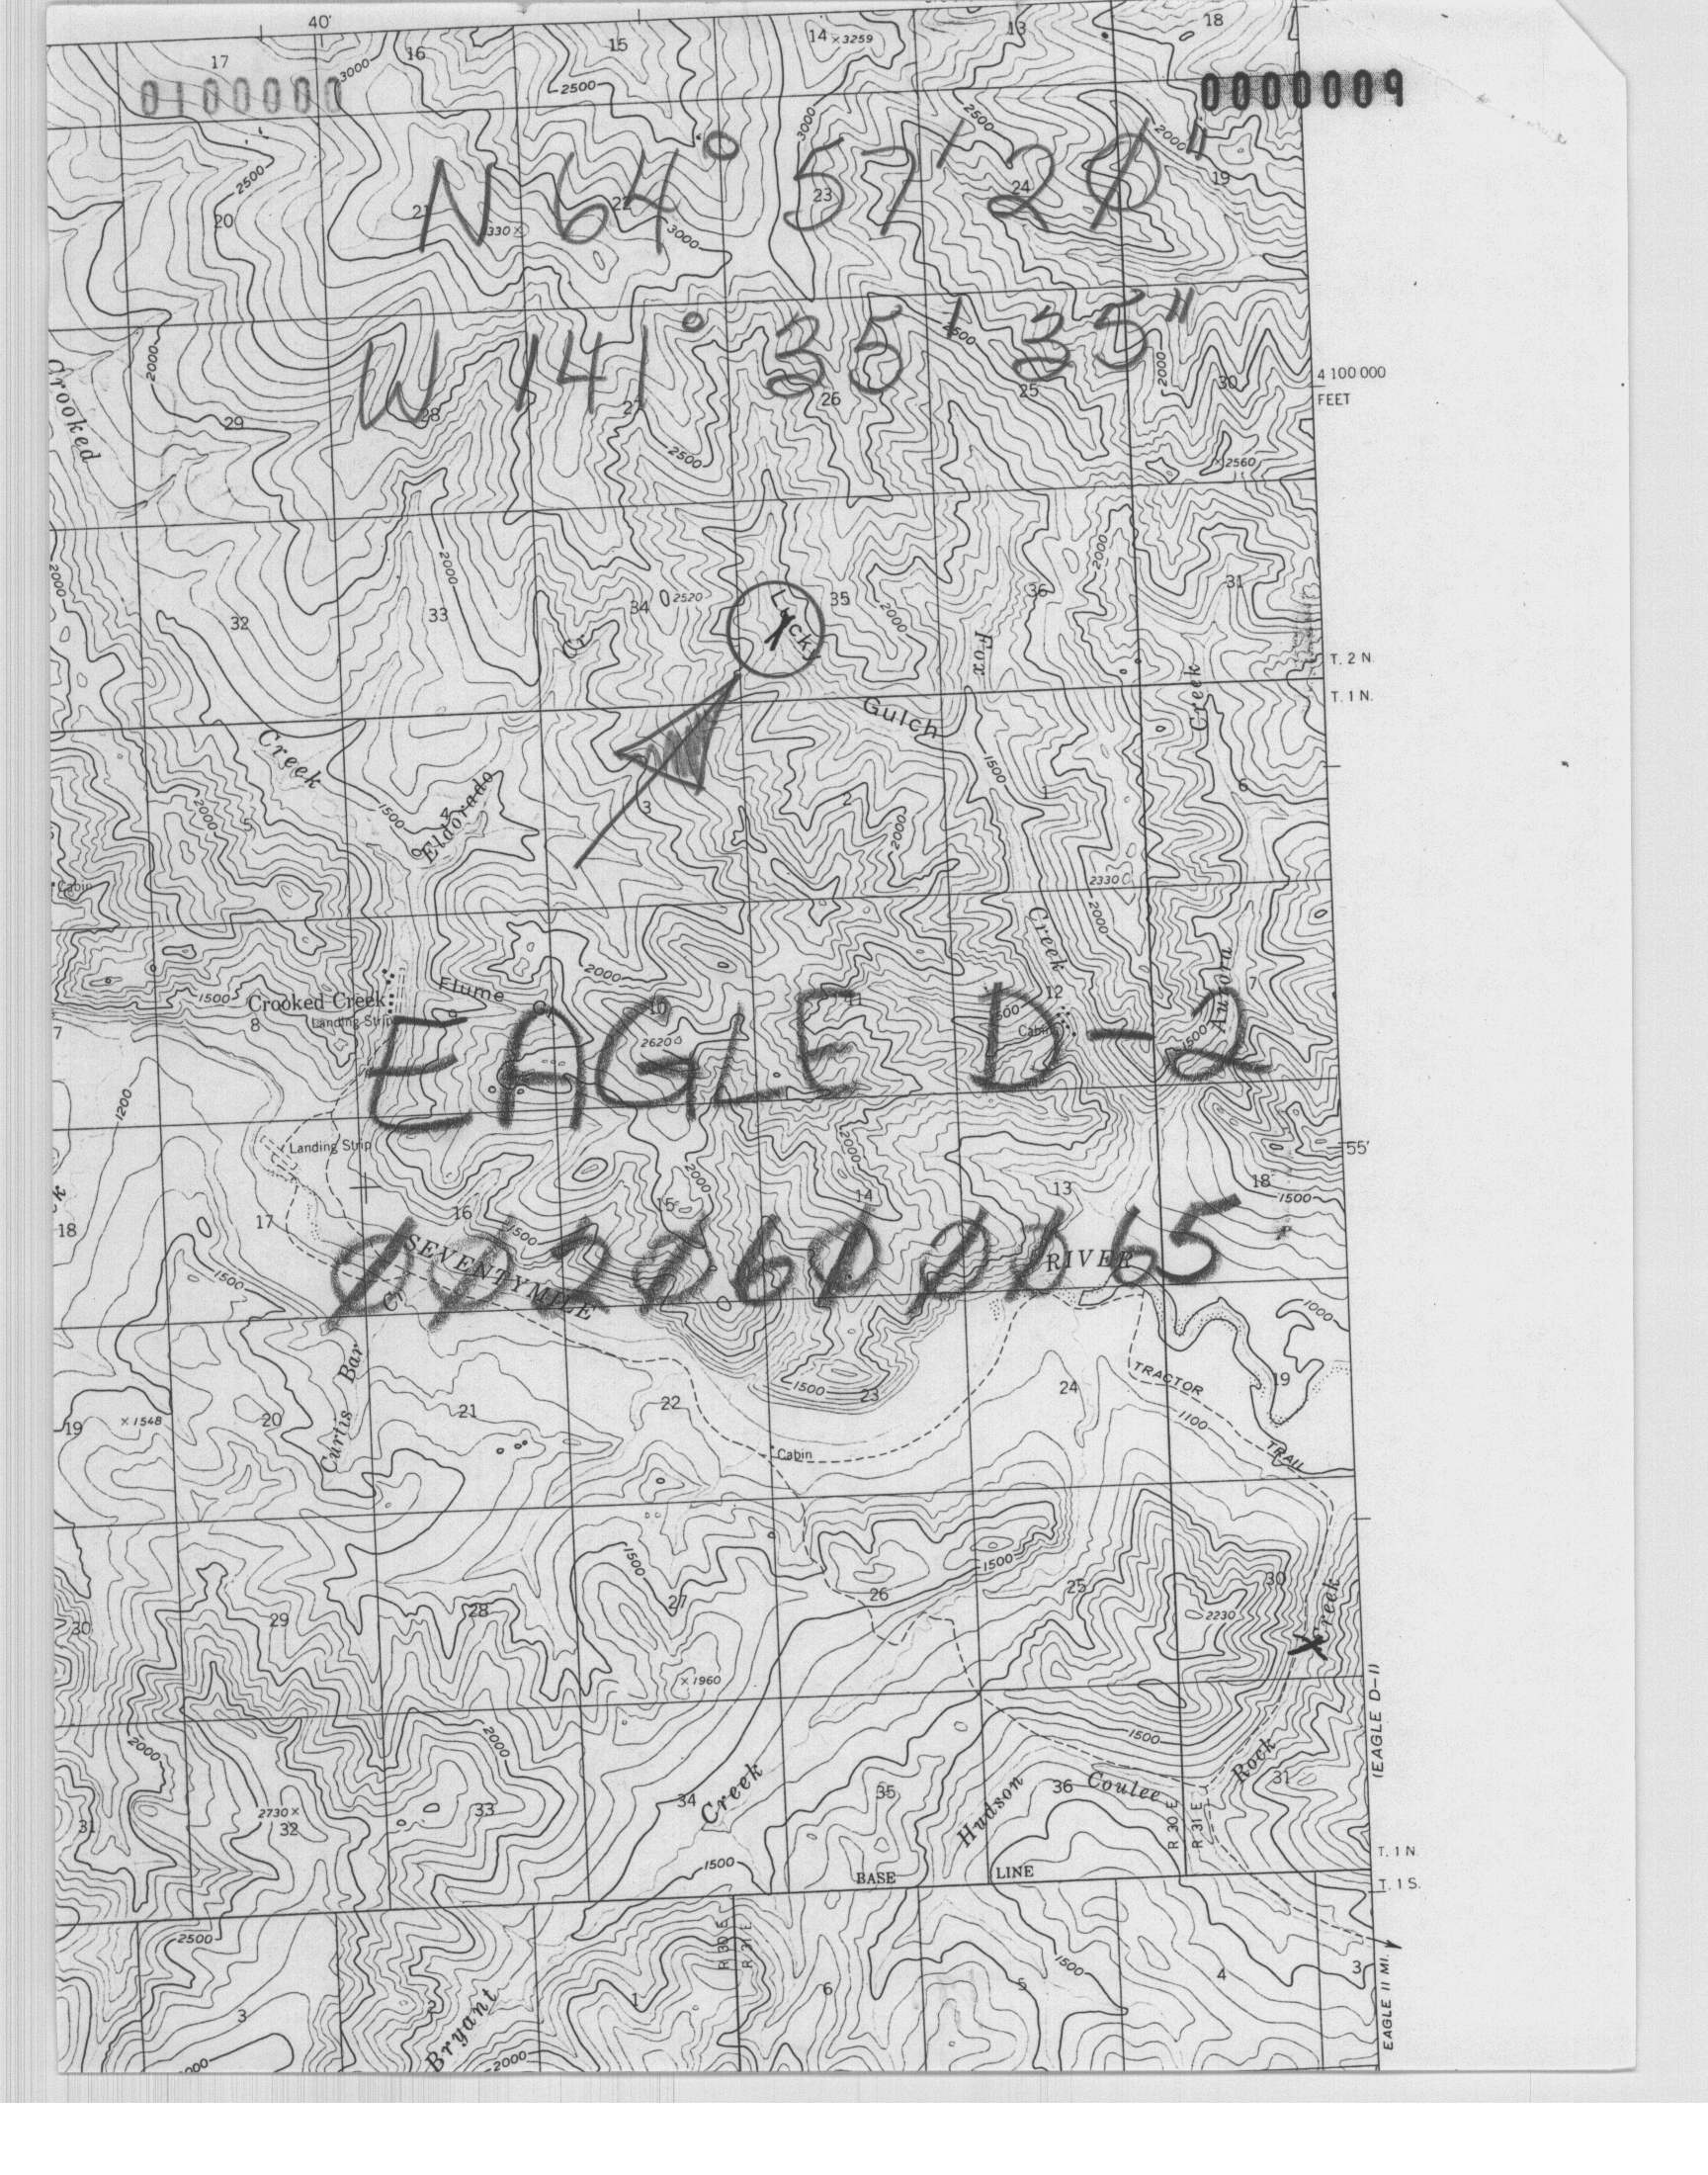 40'
17 16 15 14 ×3259 13 18
3000 2500
0100000 0000009
2500 3000 2500 2000
N 64° 57' 20"
20 21 22 23 24 19
330× 3000
W 141° 35' 35"
2000 2500 2000
Crooked 29 28 27 26 25 30
4 100 000
FEET
2500 ×2560
2000 2000 2000
32 33 34 2520 Lucky 35 2000 36 31
Cr Fox Creek
T. 2 N.
T. 1 N.
Gulch
Creek 1500
5 4 3 2 1 6
2000 1500 Eldorado 2000
Cabin 2330 2000
Creek
2000 Aurora
1500 Crooked Creek Flume Cr
Landing Strip
7 8 9 10 11 12 7
1500 Cabin 1500
2620
EAGLE D-2
1200
Landing Strip 2000 2000 55'
18 17 16 15 14 13 18
1500 1500
0020600065
SEVENTYMILE RIVER
1500 Cr 1000
Curtis Bar
1500 TRACTOR
19 ×1548 20 21 22 23 24 19
1100
Cabin TRAIL
1500 1500
30 29 28 27 26 25 30
2230 Creek
×
×1960
(EAGLE D-1)
2000 2000 1500
Rock
2730×
31 32 33 34 Creek 35 Hudson 36 Coulee 31
R 30 E R 31 E
1500
T. 1 N
BASE LINE
T. 1 S.
2500 R 30 E R 31 E 1500
3 2 1 6 5 4 3
Bryant
2000
EAGLE 11 MI.